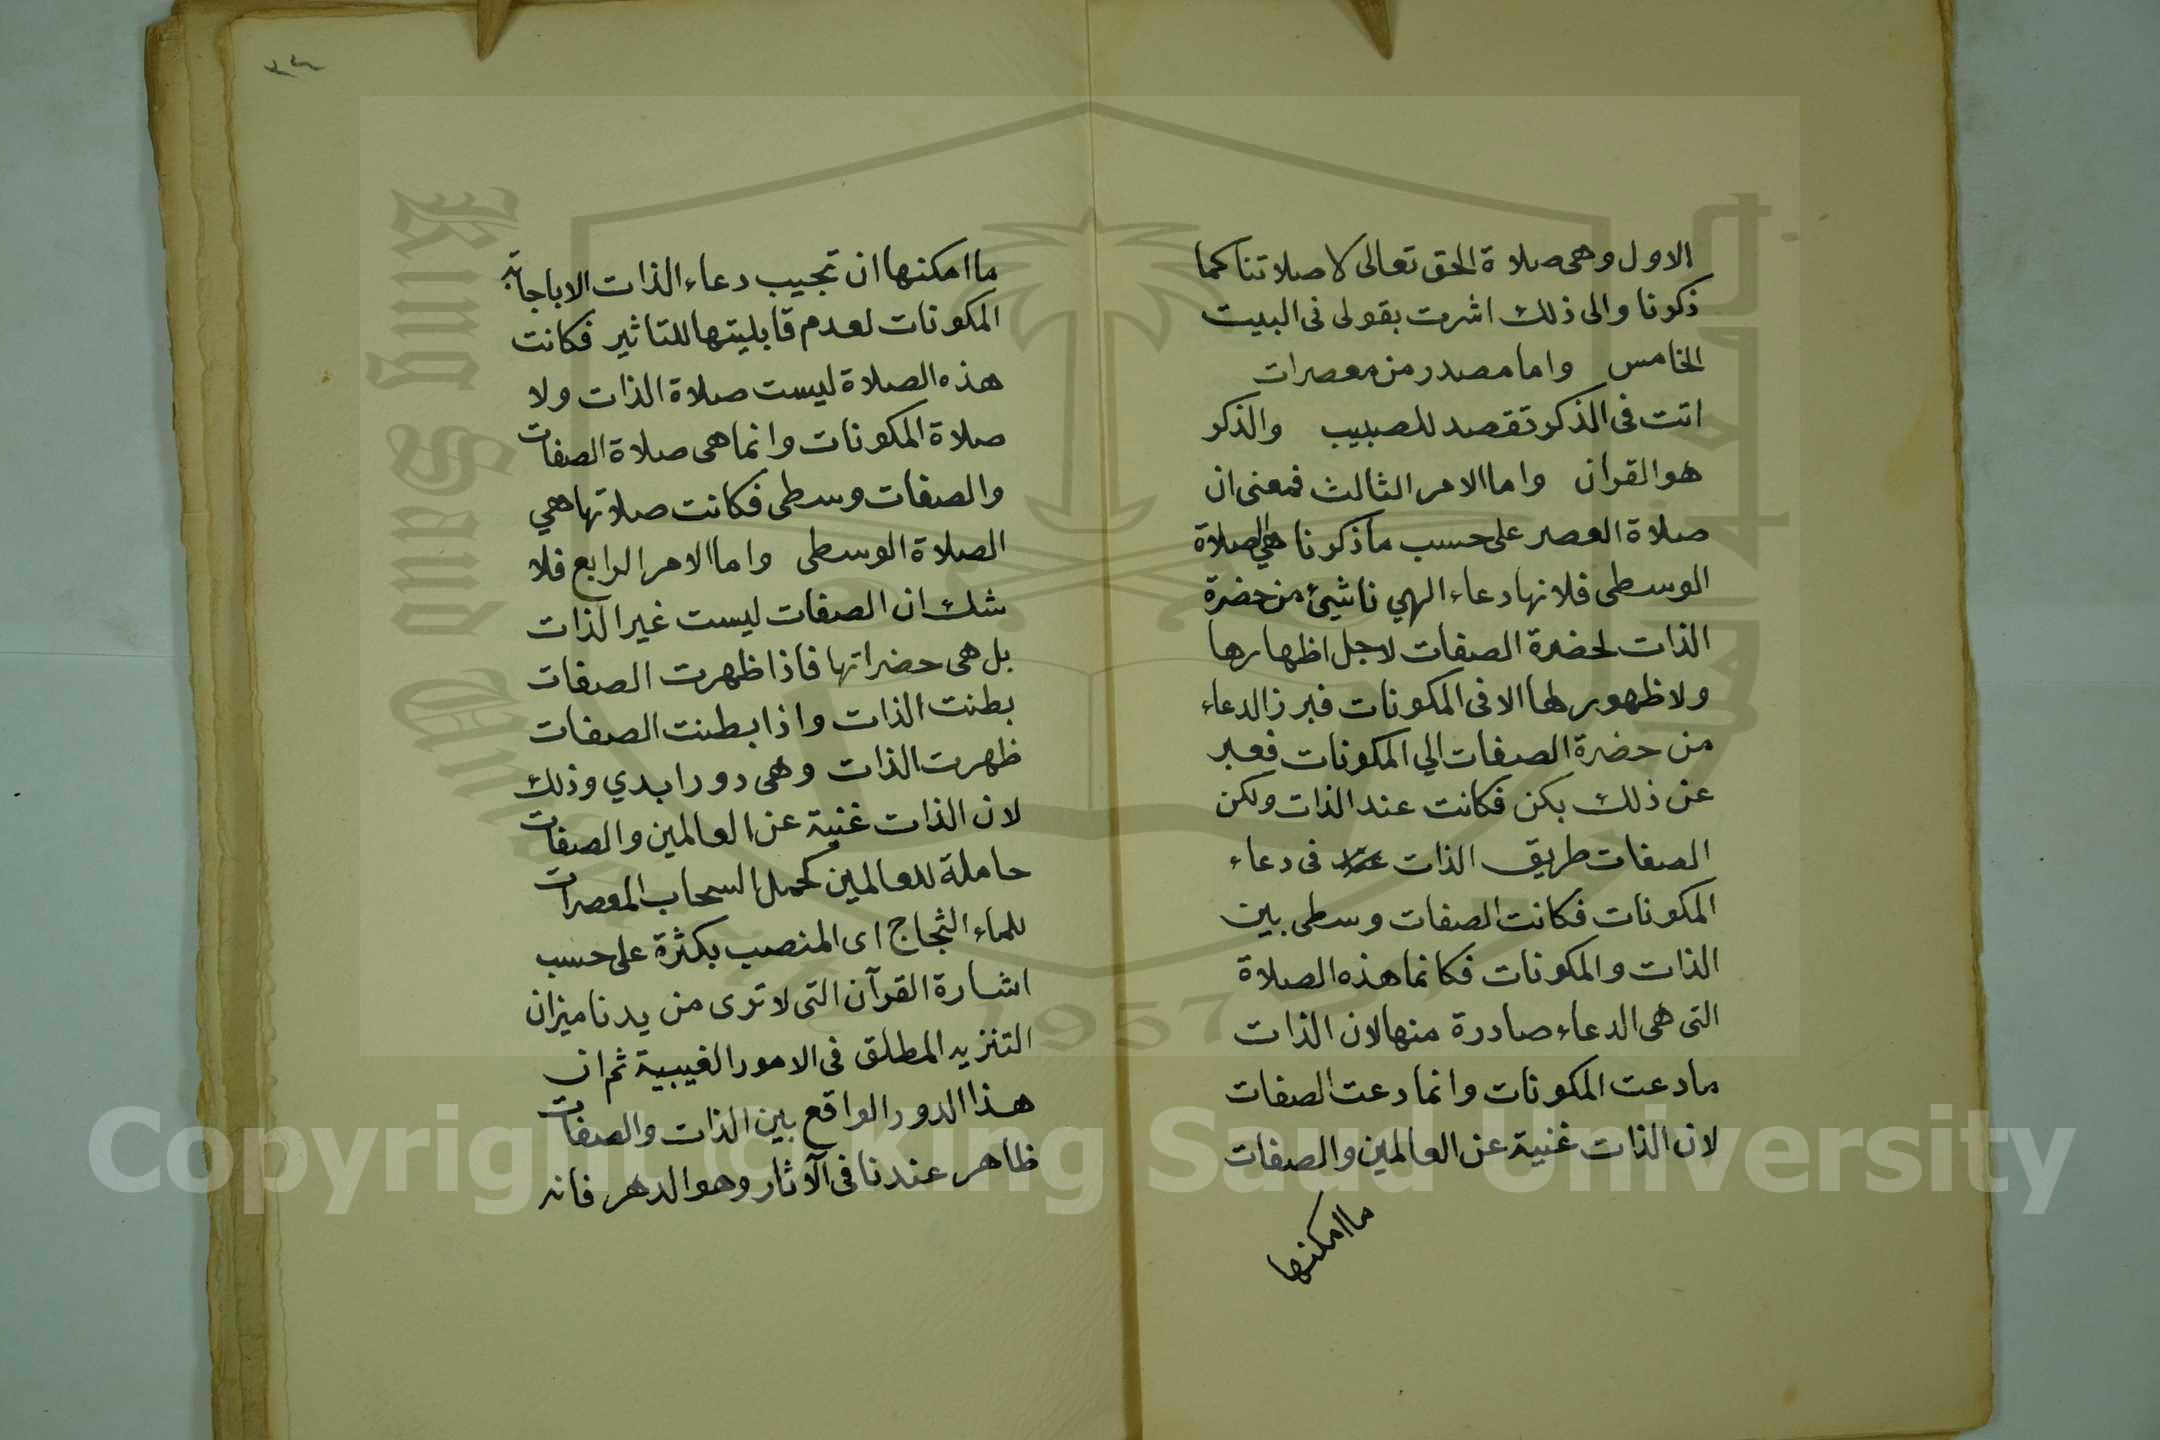 الاول وهى صلاة الحق تعالى لا صلاتنا كما
ذكرنا والى ذلك اشرت بقولى فى البيت
الخامس واما مصدر من معصرات
اتت فى الذكر تقصد للصبيب والذكر
هو القران واما الامر الثالث فمعنى ان
صلاة العصر على حسب ما ذكرنا هي الصلاة
الوسطى فلانها دعاء الهي ناشئ من حضرة
الذات لحضرة الصفات لاجل اظهارها
ولا ظهور لها الا فى المكونات فبرز الدعاء
من حضرة الصفات الي المكونات فعبر
عن ذلك بكن فكانت عند الذات ولكن
الصفات طريق الذات فى دعاء
المكونات فكانت الصفات وسطى بين
الذات والمكونات فكانما هذه الصلاة
التى هى الدعاء صادرة منها لان الذات
ما دعت المكونات وانما دعت الصفات
لان الذات غنية عن العالمين والصفات
ما امكنها
٣٤
ما امكنها ان تجيب دعاء الذات الا باجابة
المكونات لعدم قابليتها للتاثير فكانت
هذه الصلاة ليست صلاة الذات ولا
صلاة المكونات وانما هى صلاة الصفات
والصفات وسطى فكانت صلاتها هي
الصلاة الوسطى واما الامر الرابع فلا
شك ان الصفات ليست غير الذات
بل هى حضراتها فاذا ظهرت الصفات
بطنت الذات واذا بطنت الصفات
ظهرت الذات وهى دور ابدي وذلك
لان الذات غنية عن العالمين والصفات
حاملة للعالمين كحمل السحاب المعصرات
للماء الثجاج اى المنصب بكثرة على حسب
اشارة القرآن التى لا ترى من يدنا ميزان
التنزيه المطلق فى الامور الغيبية ثم ان
هذا الدور الواقع بين الذات والصفات
ظاهر عندنا فى الآثار وهو الدهر فانه
King Saud University
1957
Copyright © King Saud University